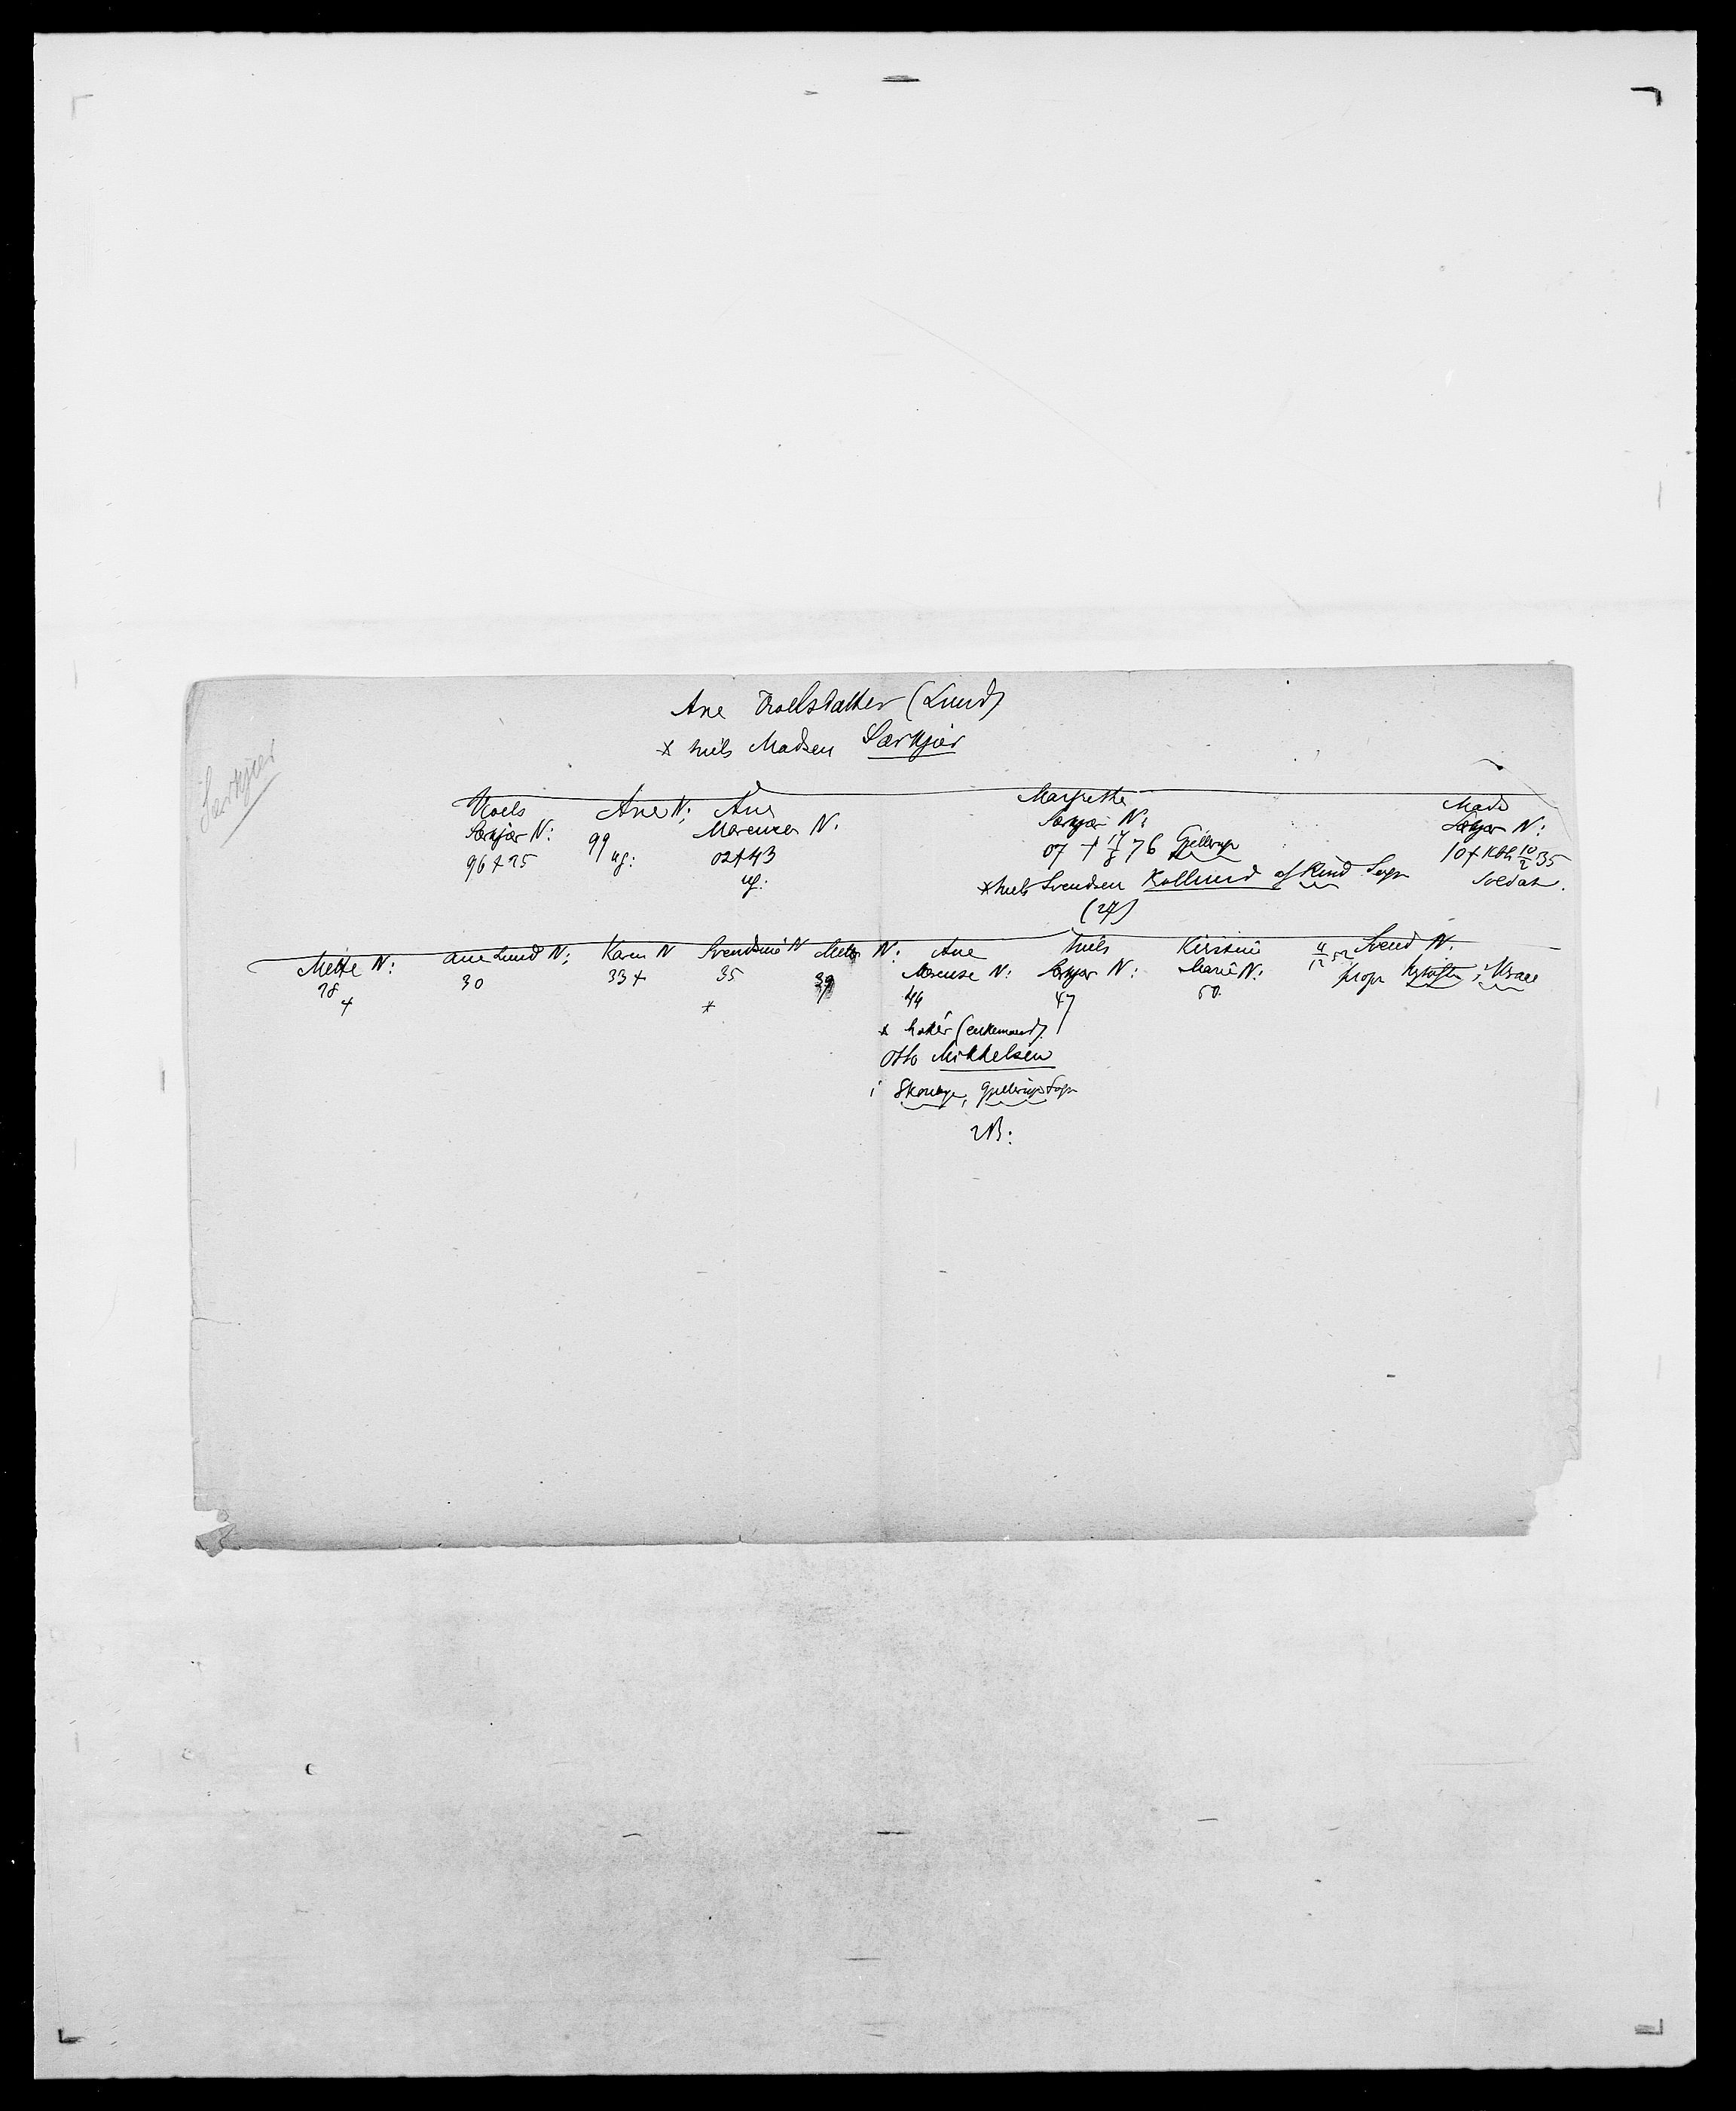 Ane Troelsdatter (Lund)
x Niels Madsen Særkjær
Særkjær
Troels
Særkjær N:
96 + 25
Ane N:
99
ug:
Ane
Marense N:
02 + 43
ug:
Margrethe
Særkjær N:
07 + 17/8 76 Gjellerup
x Niels Svendsen Kollund af Rind Sogn
(27)
Mads
Særkjær N:
10 + Kbh 10/2 35
Soldat.
Mette N:
28
+
Ane Lund N:
30
Karen N
33 +
Svendsine N
35
x
Mette N:
39
Ane
Marense N:
44
x Enkem (enkemand)
Otto Mikkelsen
i Skovby, Gjellerup Sogn
NB:
Niels
Særkjær N:
47
Kirstine
Marie N:
50.
4/12 52 Svend N.
propr